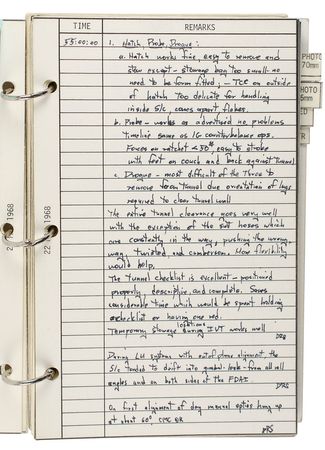 TIME REMARKS
55:00:00 1. Hatch, Probe, Drogue:
a. Hatch works fine, easy to remove and
stow except - stowage bag too small - no
need to be form fitted. - TCE on outside
of hatch too delicate for handling
inside S/C, comes apart, flakes.
b. Probe - works as advertised no problems
Timeline same as 1G counterbalance ops.
Forces on ratchet < 30#, easy to stroke
with feet on couch and back against tunnel
c. Drogue - most difficult of the three to
remove from tunnel due orientation of lugs
required to clear tunnel wall
The entire tunnel clearance goes very well
with the exception of the suit hoses which
are constantly in the way, pushing the wrong
way, twisted, and cumbersome. More flexibility
would help.
The tunnel checklist is excellent - positioned
properly, descriptive, and complete. Saves
considerable time which would be spent holding
a checklist or having one read.
Temporary stowage locations during IVT works well
DRS
During LM systems with out of plane alignment, the
S/C tended to drift into gimbal lock - from all roll
angles and on both sides of the FDAI. DRS
On first alignment of day manual optics hung up
at about 60° CMC or
DRS
22 1968
22 1968
PHOTO
70mm
PHOTO